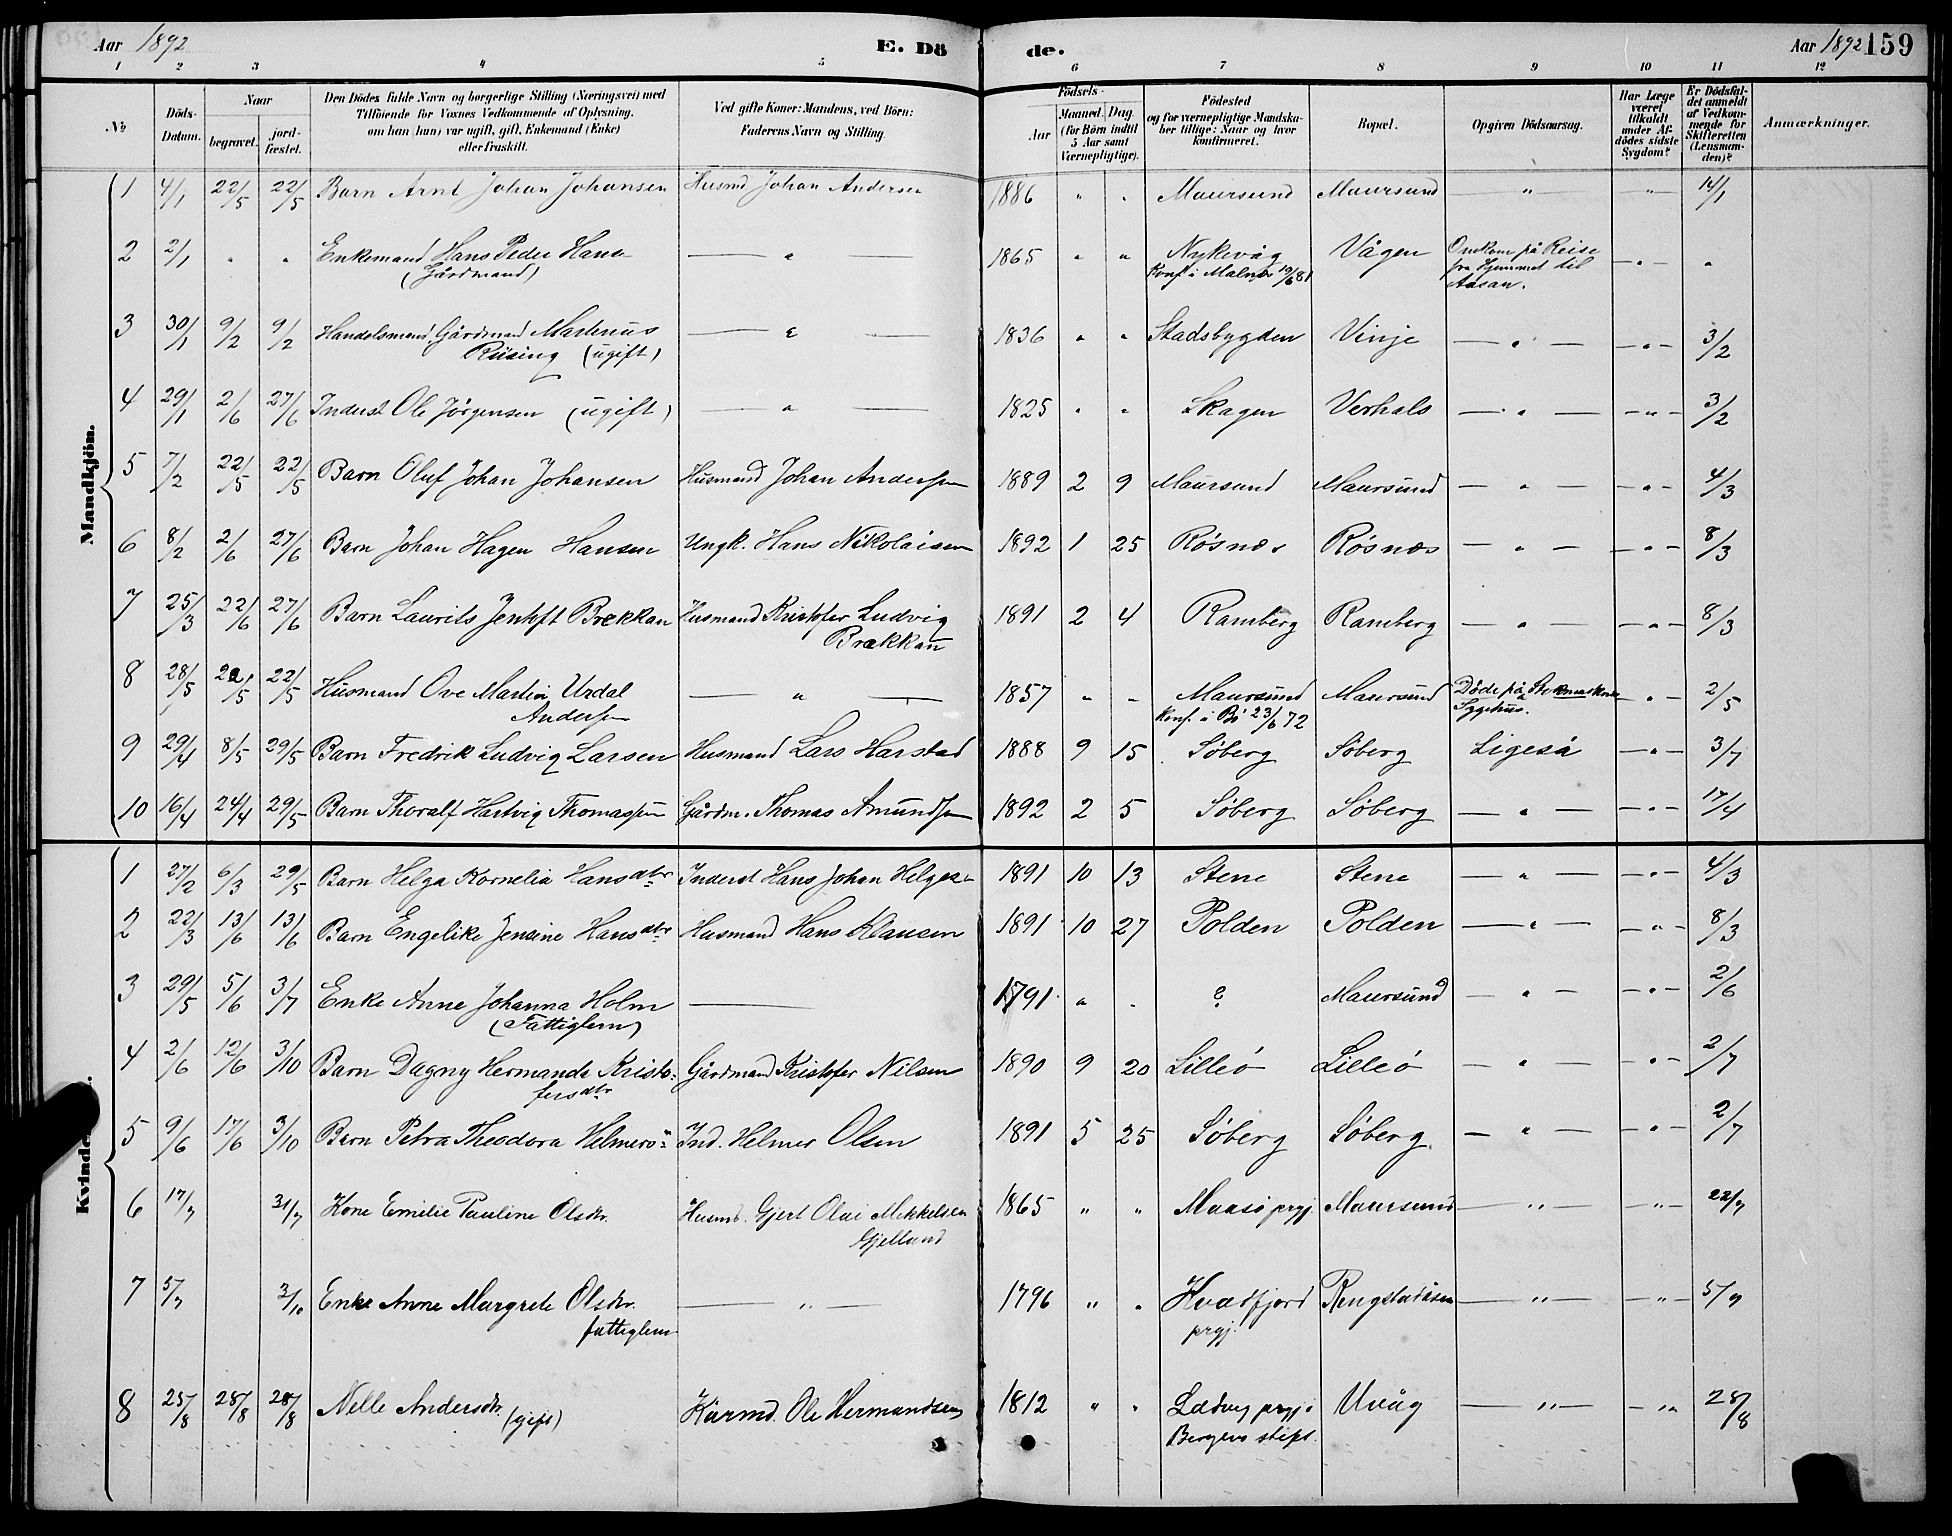 Aar 1892 E. Dö de. Aar 1892 159
1 2 3 4 5 6 7 8 9 10 11 12
№ Döds-Datum. Naar begravet. jordfæstet. Den Dödes fulde Navn og borgerlige Stilling (Næringsvei) med Tilföiende for Voxnes Vedkommende af Oplysning, om han (hun) var ugift, gift, Enkemand (Enke) eller fraskilt. Ved gifte Koner: Mandens, ved Börn: Faderens Navn og Stilling. Födsels- Aar Maaned. Dag. (for Börn indtil 5 Aar samt Værnepligtige). Födested og for værnepligtige Mandskaber tillige: Naar og hvor konfirmeret. Bopæl. Opgiven Dödsaarsag. Har Læge været tilkaldt under Afdödes sidste Sygdom? Er Dödsfaldet anmeldt af Vedkommende for Skifteretten (Lensmanden)? Anmærkninger.
Mandkjön.
1 4/1 22/5 22/5 Barn Arnt Johan Johansen Husmd Johan Andersen 1886 " " Maursund Maursund " " 14/1
2 2/1 " " Enkemand Hans Peder Hans — " — 1865 " " Nykvåg Vågen Omkom på Reise — " — "
(Gårdmand) Konf. i Malnæs 19/6 81 fra Hjemmet til
Aasan.
3 30/1 9/2 9/2 Handelsmand, Gårdmand Martinus — " — 1836 " " Stadsbygden Vinje — " — — " — 3/2
Riising (ugift)
4 29/1 2/6 27/6 Inderst Ole Jörgensen (ugift) — " — 1825 " " Skagen Verhals — " — — " — 3/2
5 7/2 22/5 22/5 Barn Oluf Johan Johansen Husmand Johan Andersen 1889 2 9 Maursund Maursund — " — — " — 4/3
6 8/2 2/6 27/6 Barn Johan Hagen Hansen Ungk. Hans Nikolaisen 1892 1 25 Rösnæs Rösnæs — " — — " — 8/3
7 25/3 22/6 27/6 Barn Laurits Jentoft Brekkan Husmand Kristofer Ludvig 1891 2 4 Ramberg Ramberg — " — — " — 8/3
Brækkan
8 28/5 22/5 22/5 Husmand Ove Martin Urdal — " — 1857 " " Maursund Maursund Döde på Stokmarknæs — " — 2/5
Andersen Konf. i Bö 23/6 72 Sygehus.
9 29/4 8/5 29/5 Barn Fredrik Ludvig Larsen Husmand Lars Harstad 1888 9 15 Söberg Söberg Ligeså — " — 3/7
10 16/4 24/4 29/5 Barn Thoralf Hartvig Thomassen Gårdm. Thomas Amundsen 1892 2 5 Söberg Söberg — " — — " — 17/4
Kvindekjön.
1 27/2 6/3 29/5 Barn Helga Kornelia Hansdtr Inderst Hans Johan Helges 1891 10 13 Stene Stene — " — — " — 4/3
2 22/3 13/6 13/6 Barn Engelike Jensine Hansdtr Husmand Hans Klausen 1891 10 27 Polden Polden — " — — " — 8/3
3 29/5 5/6 3/7 Enke Anne Johanna Holm — 1791 " " ? Maursund — " — — " — 2/6
(Fattiglem)
4 2/6 12/6 3/10 Barn Dagny Hermande Kristo- Gårdmand Kristofer Nilsen 1890 9 20 Lilleö Lilleö — " — — " — 2/7
fersdtr
5 9/6 17/6 3/10 Barn Petra Theodora Helmers Ind. Helmer Olsen 1891 5 25 Söberg Söberg — " — — " — 2/7
6 17/7 31/7 Kone Emilie Pauline Olsdtr. Husmd. Gjert Olai Mikkelsen 1865 " " Maasö prgj. Maursund — " — — " — 22/7
Gjelland
7 5/7 3/10 Enke Anne Margrete Olsdtr. — " — 1796 " " Kvædfjord Ringstadåsen — " — — " — 5/7
fattiglem prgj.
8 25/8 28/8 28/8 Nelle Andersdtr. (gift) Kårmd. Ole Hermandsen 1812 " " Ladvig prgj. i Uvåg — " — — " 28/8
Bergens stift.